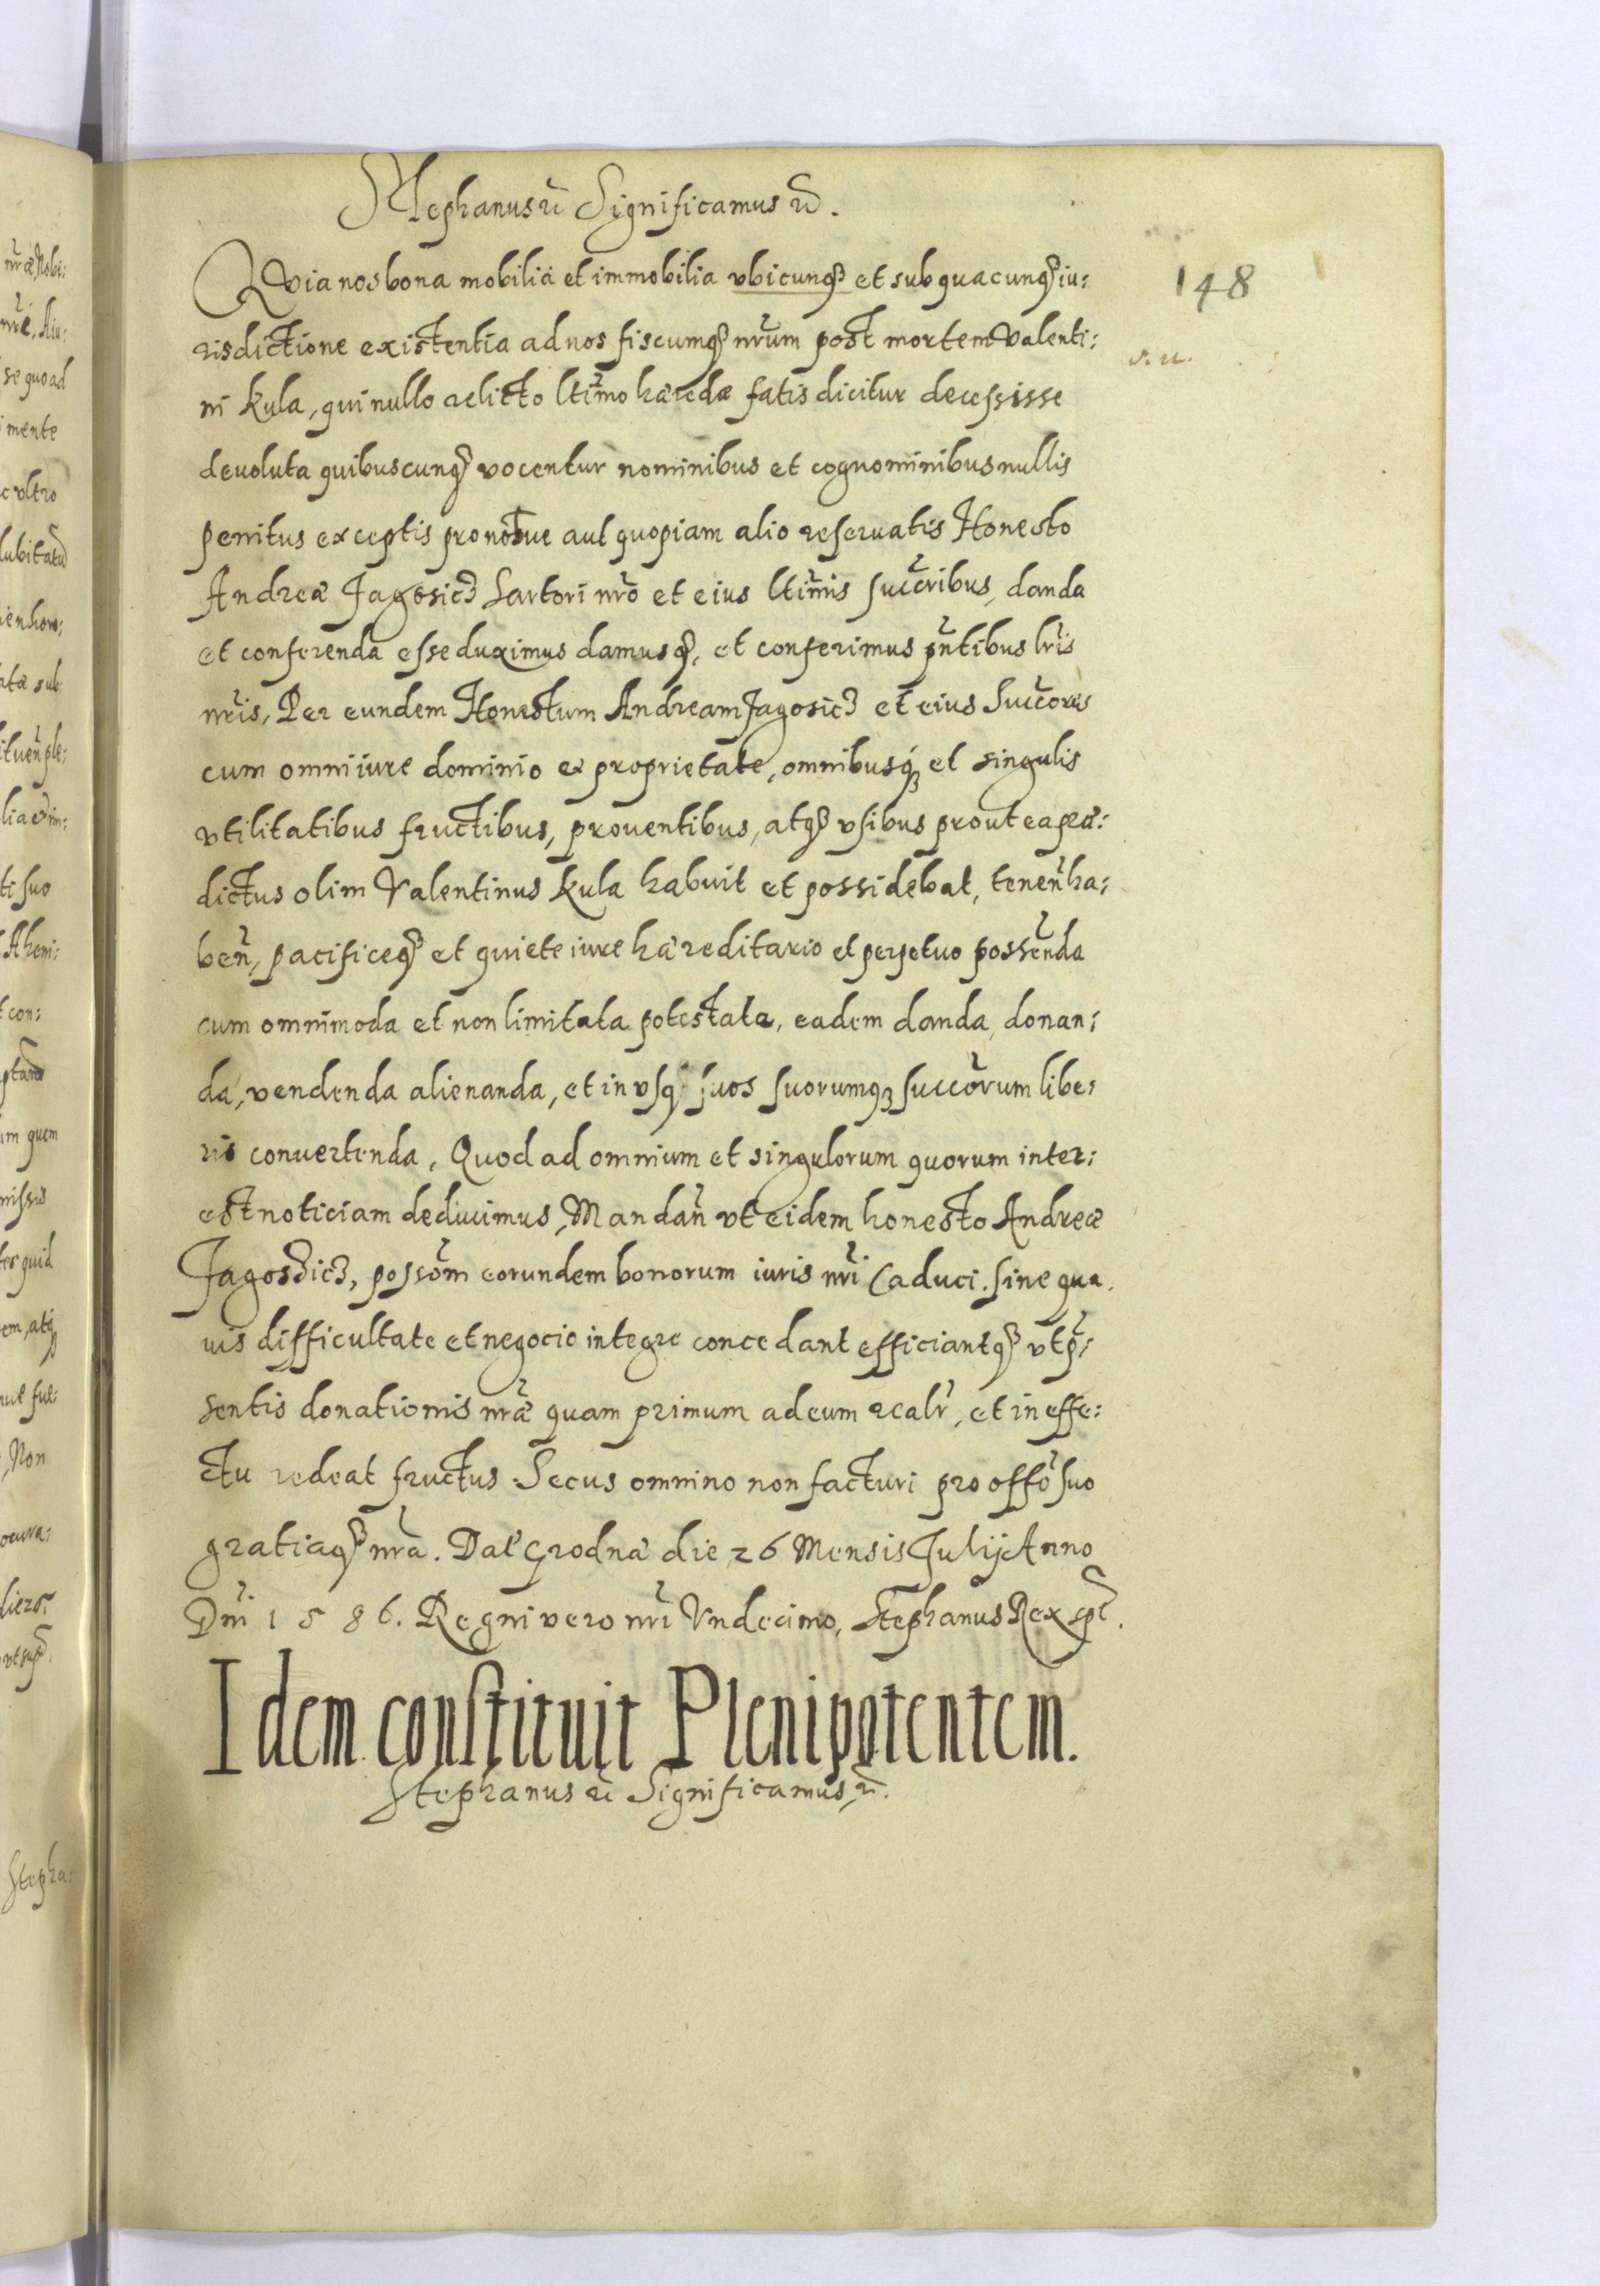 Stephanus etc Significamus etc.
148
Quia nos bona mobilia et immobilia vbicunq3 et sub quacunq3 iu:
risdictione existentia ad nos fiscumq3 nrum post mortem Valenti:
s. n.
ni Kula, qui nullo relicto ltimo hærede fatis dicitur decessisse
deuoluta quibuscunq3 vocentur nominibus et cognominibus nullis
penitus exceptis pro nobue aut quopiam alio reseruatis Honesto
Andreæ Jagosicz Sartori nro et eius ltimis succribus, danda
et conferenda esse duximus damusq3, et conferimus pntibus lris
nris, Per eundem Honestum Andream Jagosicz et eius Succores
cum omni iure dominio & proprietate, omnibusq3 et singulis
vtilitatibus fructibus, prouentibus, atq3 vsibus prout ea præ:
dictus olim Valentinus Kula habuit et possidebat, tenen ha:
ben, pacificeq3 et quiete iure hæreditario et perpetuo possenda
cum omnimoda et non limitata potestate, eadem danda, donan:
da, vendenda alienanda, et in vsq suos suorumq3 succorum libe:
ris conuertenda, Quod ad omnium et singulorum quorum inter:
est noticiam deducimus, Mandan vt eidem honesto Andreæ
Jagosdicz, possom eorundem bonorum iuris nri Caduci. sine qua
uis difficultate et negocio integre concedant efficiantq3 vt p:
sentis donationis nræ quam primum ad eum realr, et in effe:
ctu redeat fructus. Secus omnino non facturi pro offo suo
gratiaq3 nra. Dat Grodnæ die 26 Mensis Julij Anno
Dni 1586. Regni vero nri Vndecimo, Stephanus Rex spt.
Idem constituit Plenipotentem.
Stephanus etc Significamus, etc.